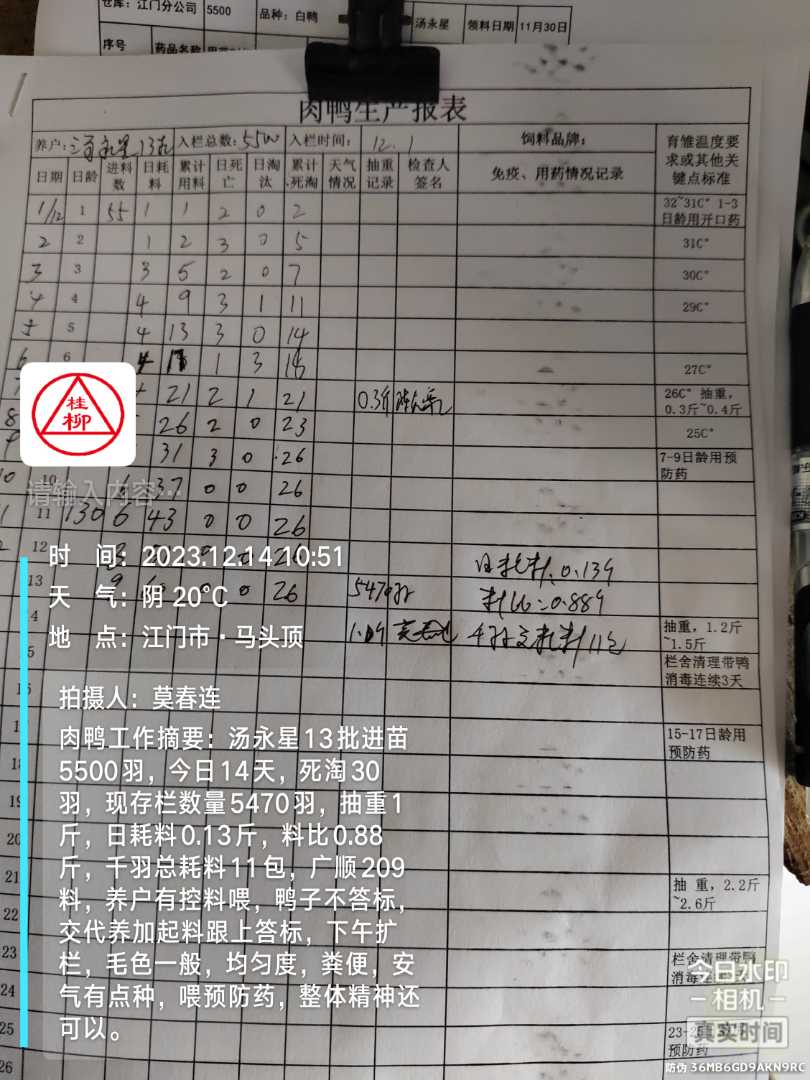 仓库: 江门分公司 5500 品种: 白鸭 汤永星 领料日期 11月30日
序号 药品名称
肉鸭生产报表
养户: 汤永星13批 入栏总数: 5500 入栏时间: 12.1 饲料品牌: 育雏温度要求或其他关键点标准
日期 日龄 进料数 日耗料 累计用料 日死亡 日淘汰 累计死淘 天气情况 抽重记录 检查人签名 免疫、用药情况记录
1/12 1 55 1 1 2 0 2 32~31C° 1-3日龄用开口药
2 2 1 2 3 0 5 31C°
3 3 3 5 2 0 7 30C°
4 4 4 9 3 1 11 29C°
5 5 4 13 3 0 14
6 6 4 1 3 18 27C°
21 2 1 21 0.3斤 26C° 抽重,0.3斤~0.4斤
8 26 2 0 23 25C°
31 3 0 26 7-9日龄用预防药
10 10 6 37 0 0 26
11 130 6 43 0 0 26
12 0 26 日耗料:0.13斤
13 9 0 26 5470羽 料比=0.88斤
4 莫春连 千羽总耗料11包 抽重,1.2斤~1.5斤
5 栏舍清理带鸭消毒连续3天
15-17日龄用预防药
18
19
20
21 抽 重,2.2斤~2.6斤
22
23 栏舍清理带鸭消毒
24
25 预防药
26
桂柳
请输入内容…
时 间: 2023.12.14 10:51
天 气: 阴 20°C
地 点: 江门市·马头顶
拍摄人: 莫春连
肉鸭工作摘要: 汤永星13批进苗
5500羽, 今日14天, 死淘30
羽, 现存栏数量5470羽, 抽重1
斤, 日耗料0.13斤, 料比0.88
斤, 千羽总耗料11包, 广顺209
料, 养户有控料喂, 鸭子不答标,
交代养加起料跟上答标, 下午扩
栏, 毛色一般, 均匀度, 粪便, 安
气有点种, 喂预防药, 整体精神还
可以。
今日水印
相机
真实时间
防伪 36MB6GD9AKN9RC